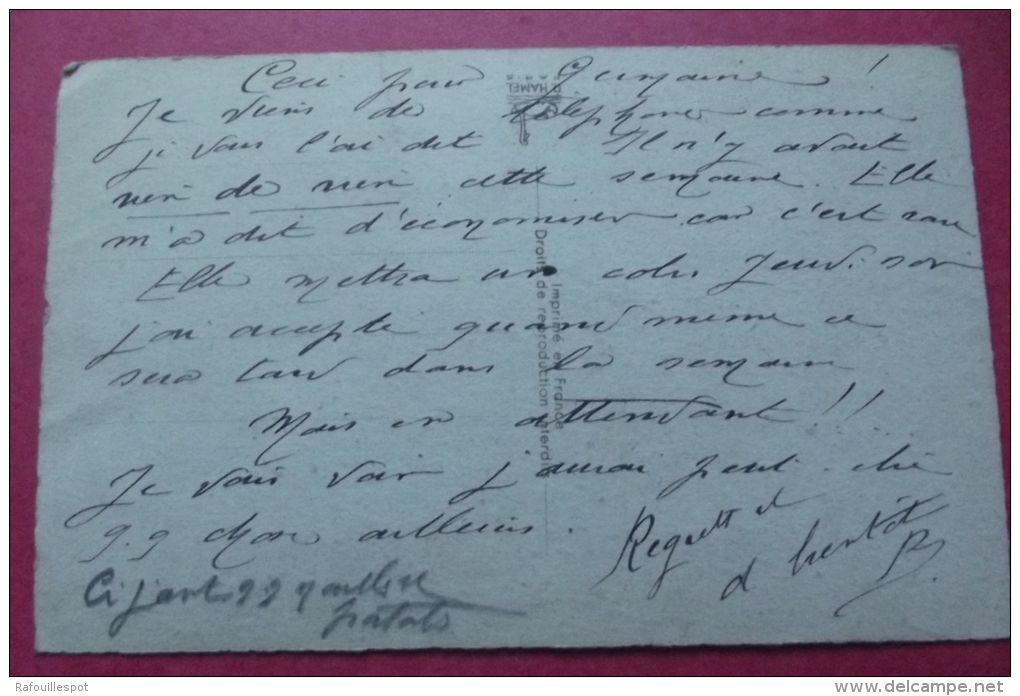 Ceci pour Germaine !
Je viens de téléphoner comme
je vous l'ai dit Il n'y avait
rien de rien cette semaine. Elle
m'a dit d'économiser car c'est rare
Elle mettra un colis Jeudi soir
j'ai accepté quand meme ce
sera tard dans la semaine
Mais en attendant !!
Je vais voir j'aurai peut-être
q.q chose ailleurs.
Regrett et
à bientôt
Ci joint
HAMEL
Imprimé en France
Droits de reproduction interdits
Rafouillespot
www.delcampe.net